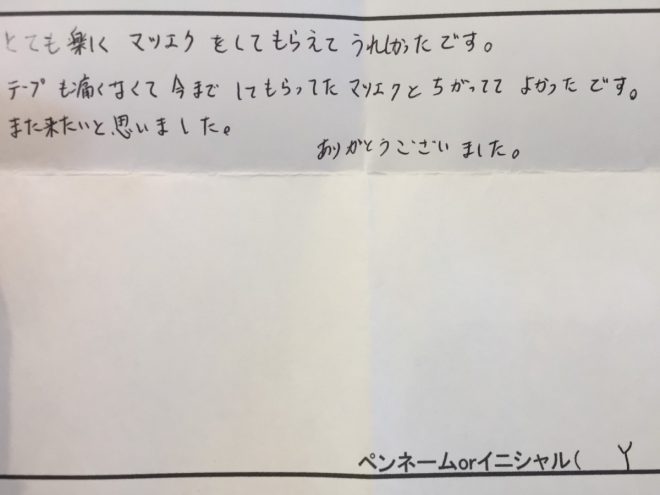 とても楽しく マツエク をしてもらえて うれしかったです。
テープも痛くなくて 今まで してもらってた マツエクと ちがってて よかったです。
また来たいと思いました。
ありがとうございました。
ペンネームorイニシャル( Y